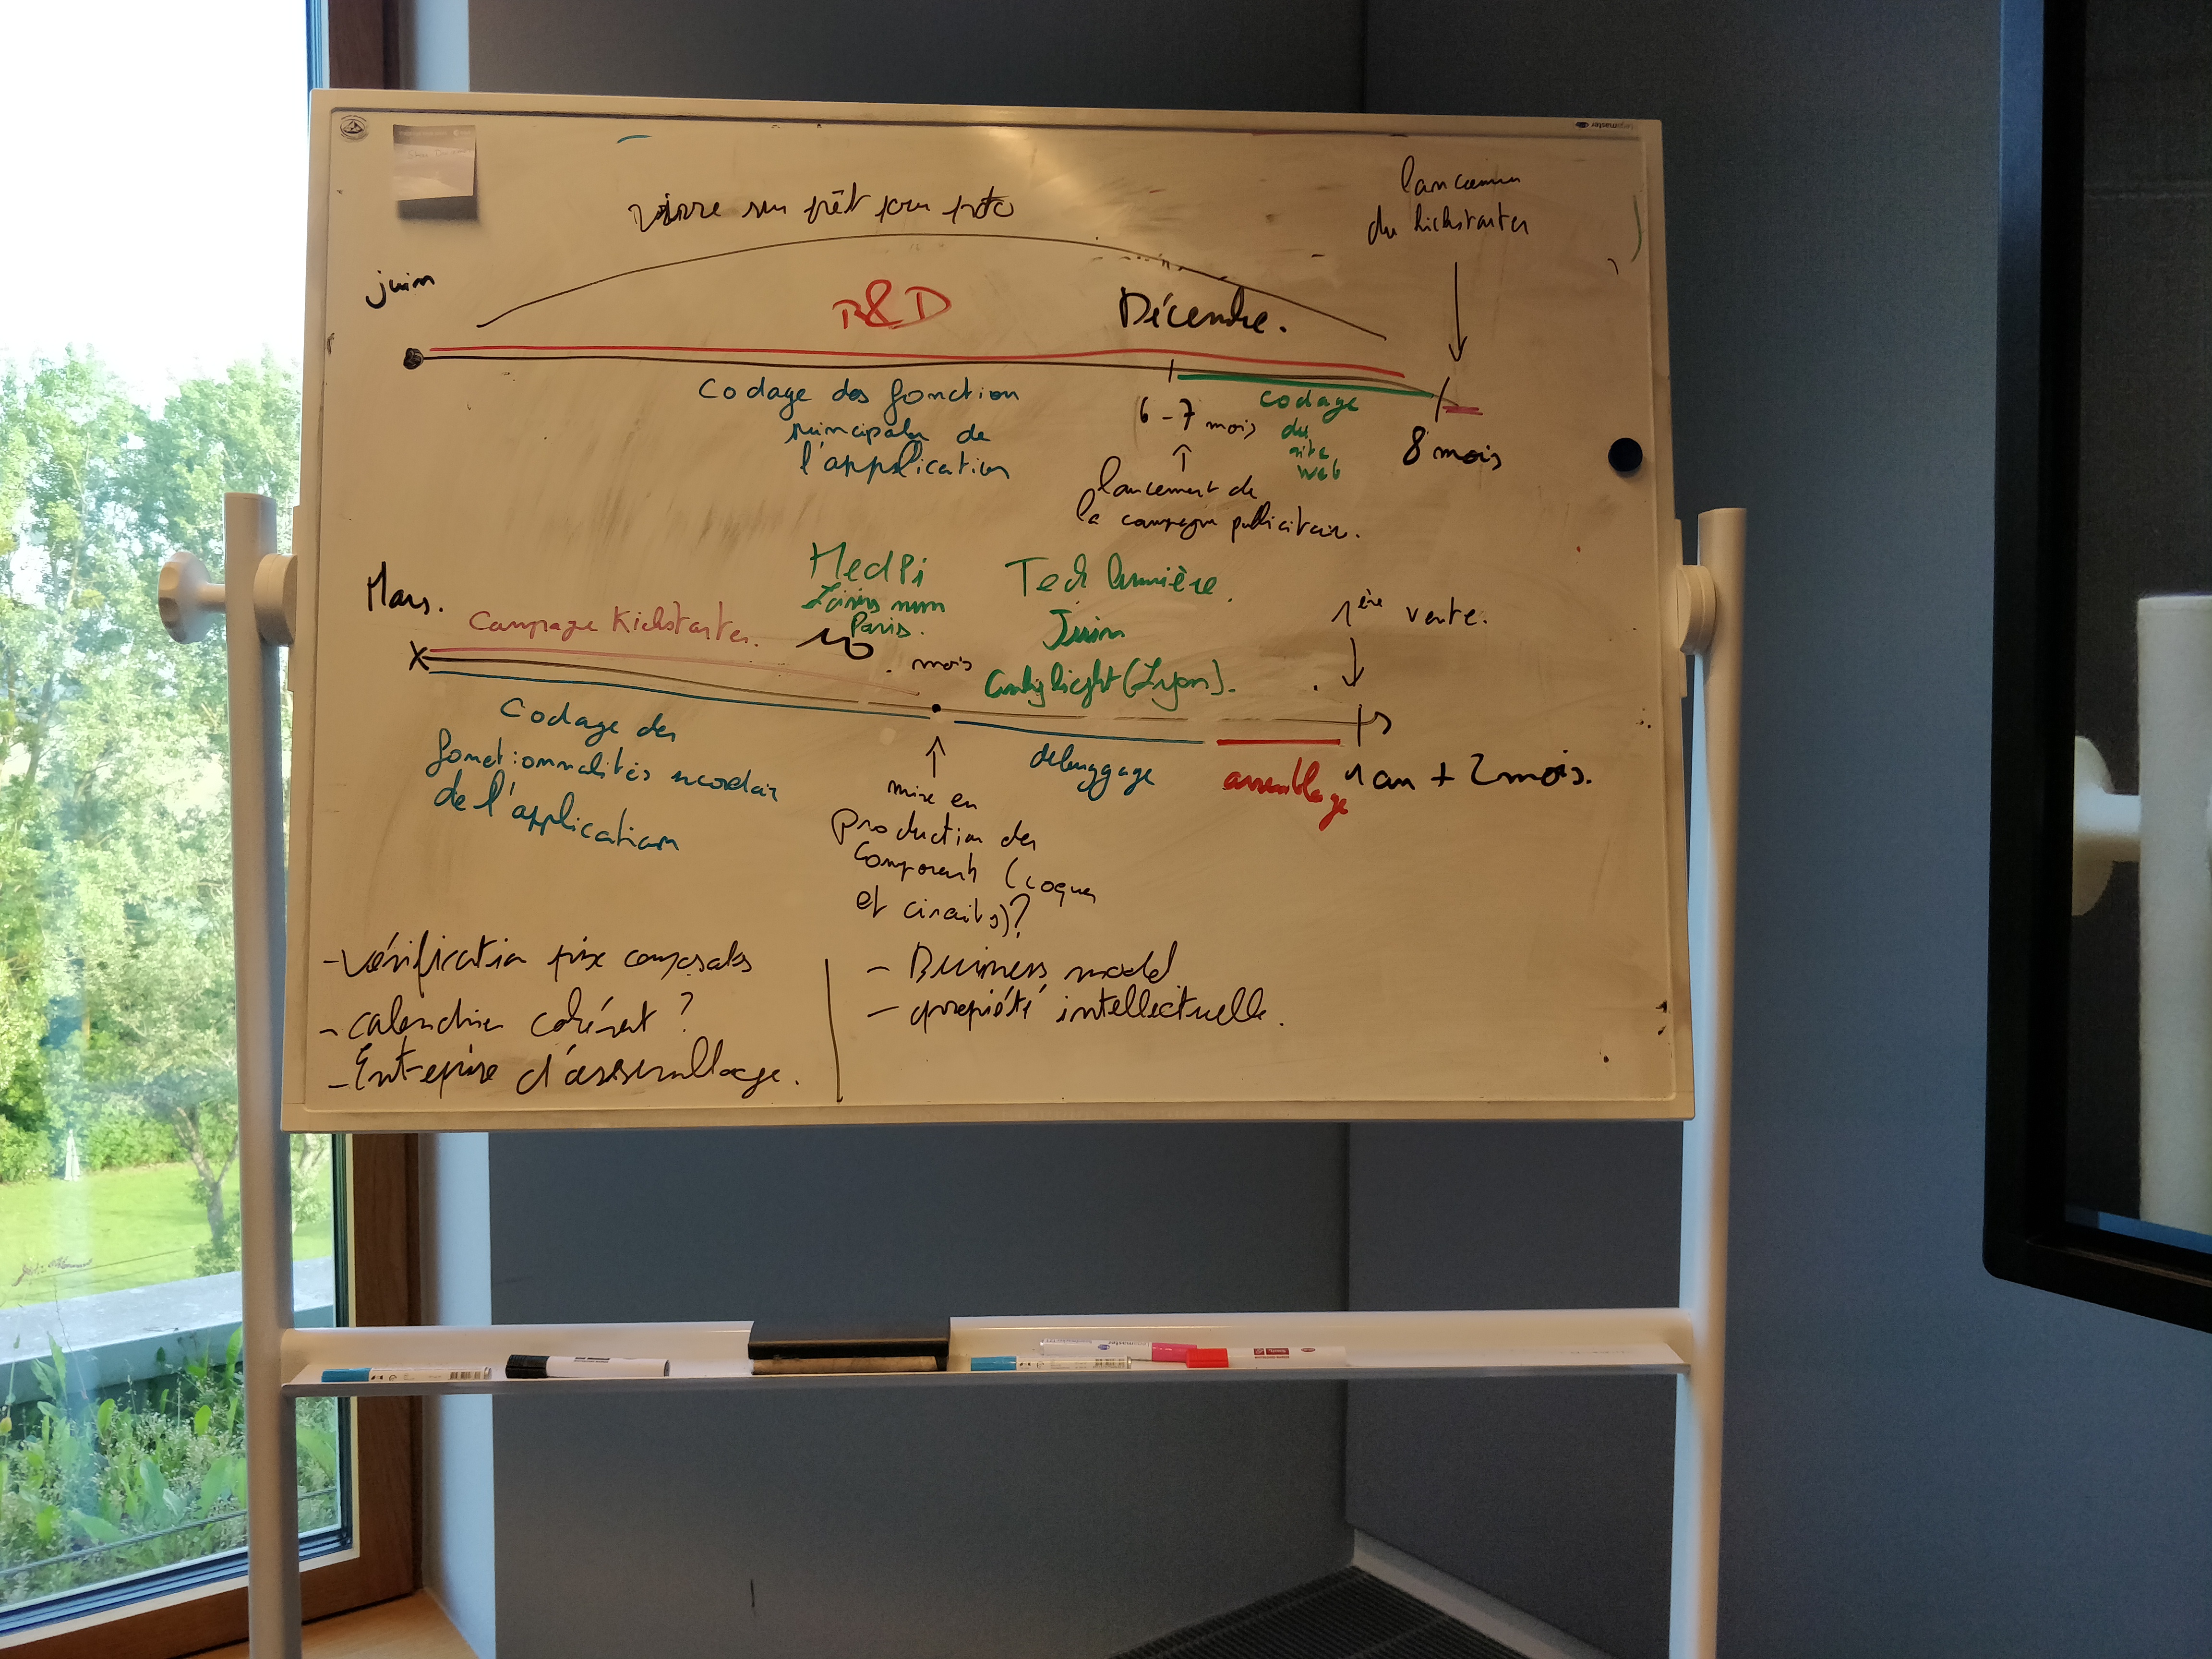 lancemen
du kickstarter
vivre sur prêt pour proto
juin
R&D
Décembre.
Codage des fonction
principales de
l'application
6-7 mois
codage
du
site
web
8 mois
lancement de
la campagne publicitair.
Mars.
Campagne Kickstarter.
MedPi
Loisirs num
Paris.
10 mois
Tech lumière.
Juin
(Lyon).
1ère vente.
Codage des
fonctionnalités secondair
de l'application
debuggage
assemblage
1 an + 2 mois.
mise en
Production des
Composents (coques
et circuits)?
- Vérification prix composants
- calendrier cohérent ?
- Entreprise d'assemblage.
- Business model
- propriété intellectuelle.